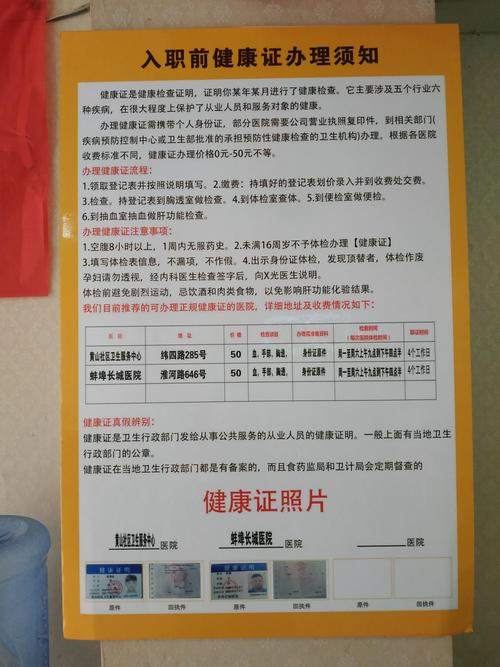 入职前健康证办理须知
健康证是健康检查证明，证明你某年某月进行了健康检查。它主要涉及五个行业六
种疾病，在很大程度上保护了从业人员和服务对象的健康。
办理健康证需携带个人身份证，部分医院需要公司营业执照复印件，到相关部门(
疾病预防控制中心或卫生部批准的承担预防性健康检查的卫生机构)办理。根据各医院
收费标准不同，健康证办理价格0元-50元不等。
办理健康证流程：
1.领取登记表并按照说明填写。2.缴费：持填好的登记表划价录入并到收费处交费。
3.检查。持登记表到胸透室做检查。4.到体检室查体。5.到便检室做便检。
6.到抽血室抽血做肝功能检查。
办理健康证注意事项：
1.空腹8小时以上，1周内无服药史。2.未满16周岁不予体检办理【健康证】
3.填写体检表信息，不漏项，不作假。4.出示身份证体检，发现顶替者，体检作废
孕妇请勿透视，经内科医生检查签字后，向X光医生说明。
体检前避免剧烈运动，忌饮酒和肉类食物，以免影响肝功能化验结果。
我们目前推荐的可办理正规健康证的医院，详细地址及收费情况如下：
医 院 地址 价 格 检查项目 办理完全需资料 检查时间 取证时间
(每次医院体检时间)
黄山社区卫生服务中心 纬四路285号 50 血、手部、胸透、 身份证原件 周一至周六上午九点到下午四点半 4个工作日
蚌埠长城医院 淮河路646号 50 血、手部、胸透、 身份证原件 周一至周六上午九点到下午四点半 4个工作日
健康证真假辨别：
健康证是卫生行政部门发给从事公共服务的从业人员的健康证明。一般上面有当地卫生
行政部门的公章。
健康证在当地卫生行政部门都是有备案的，而且食药监局和卫计局会定期督查的
健康证照片
黄山社区卫生服务中心 医院 蚌埠长城医院 医院 医院
健康证明 健康证明
原件 回执件 原件 回执件 原件 回执件